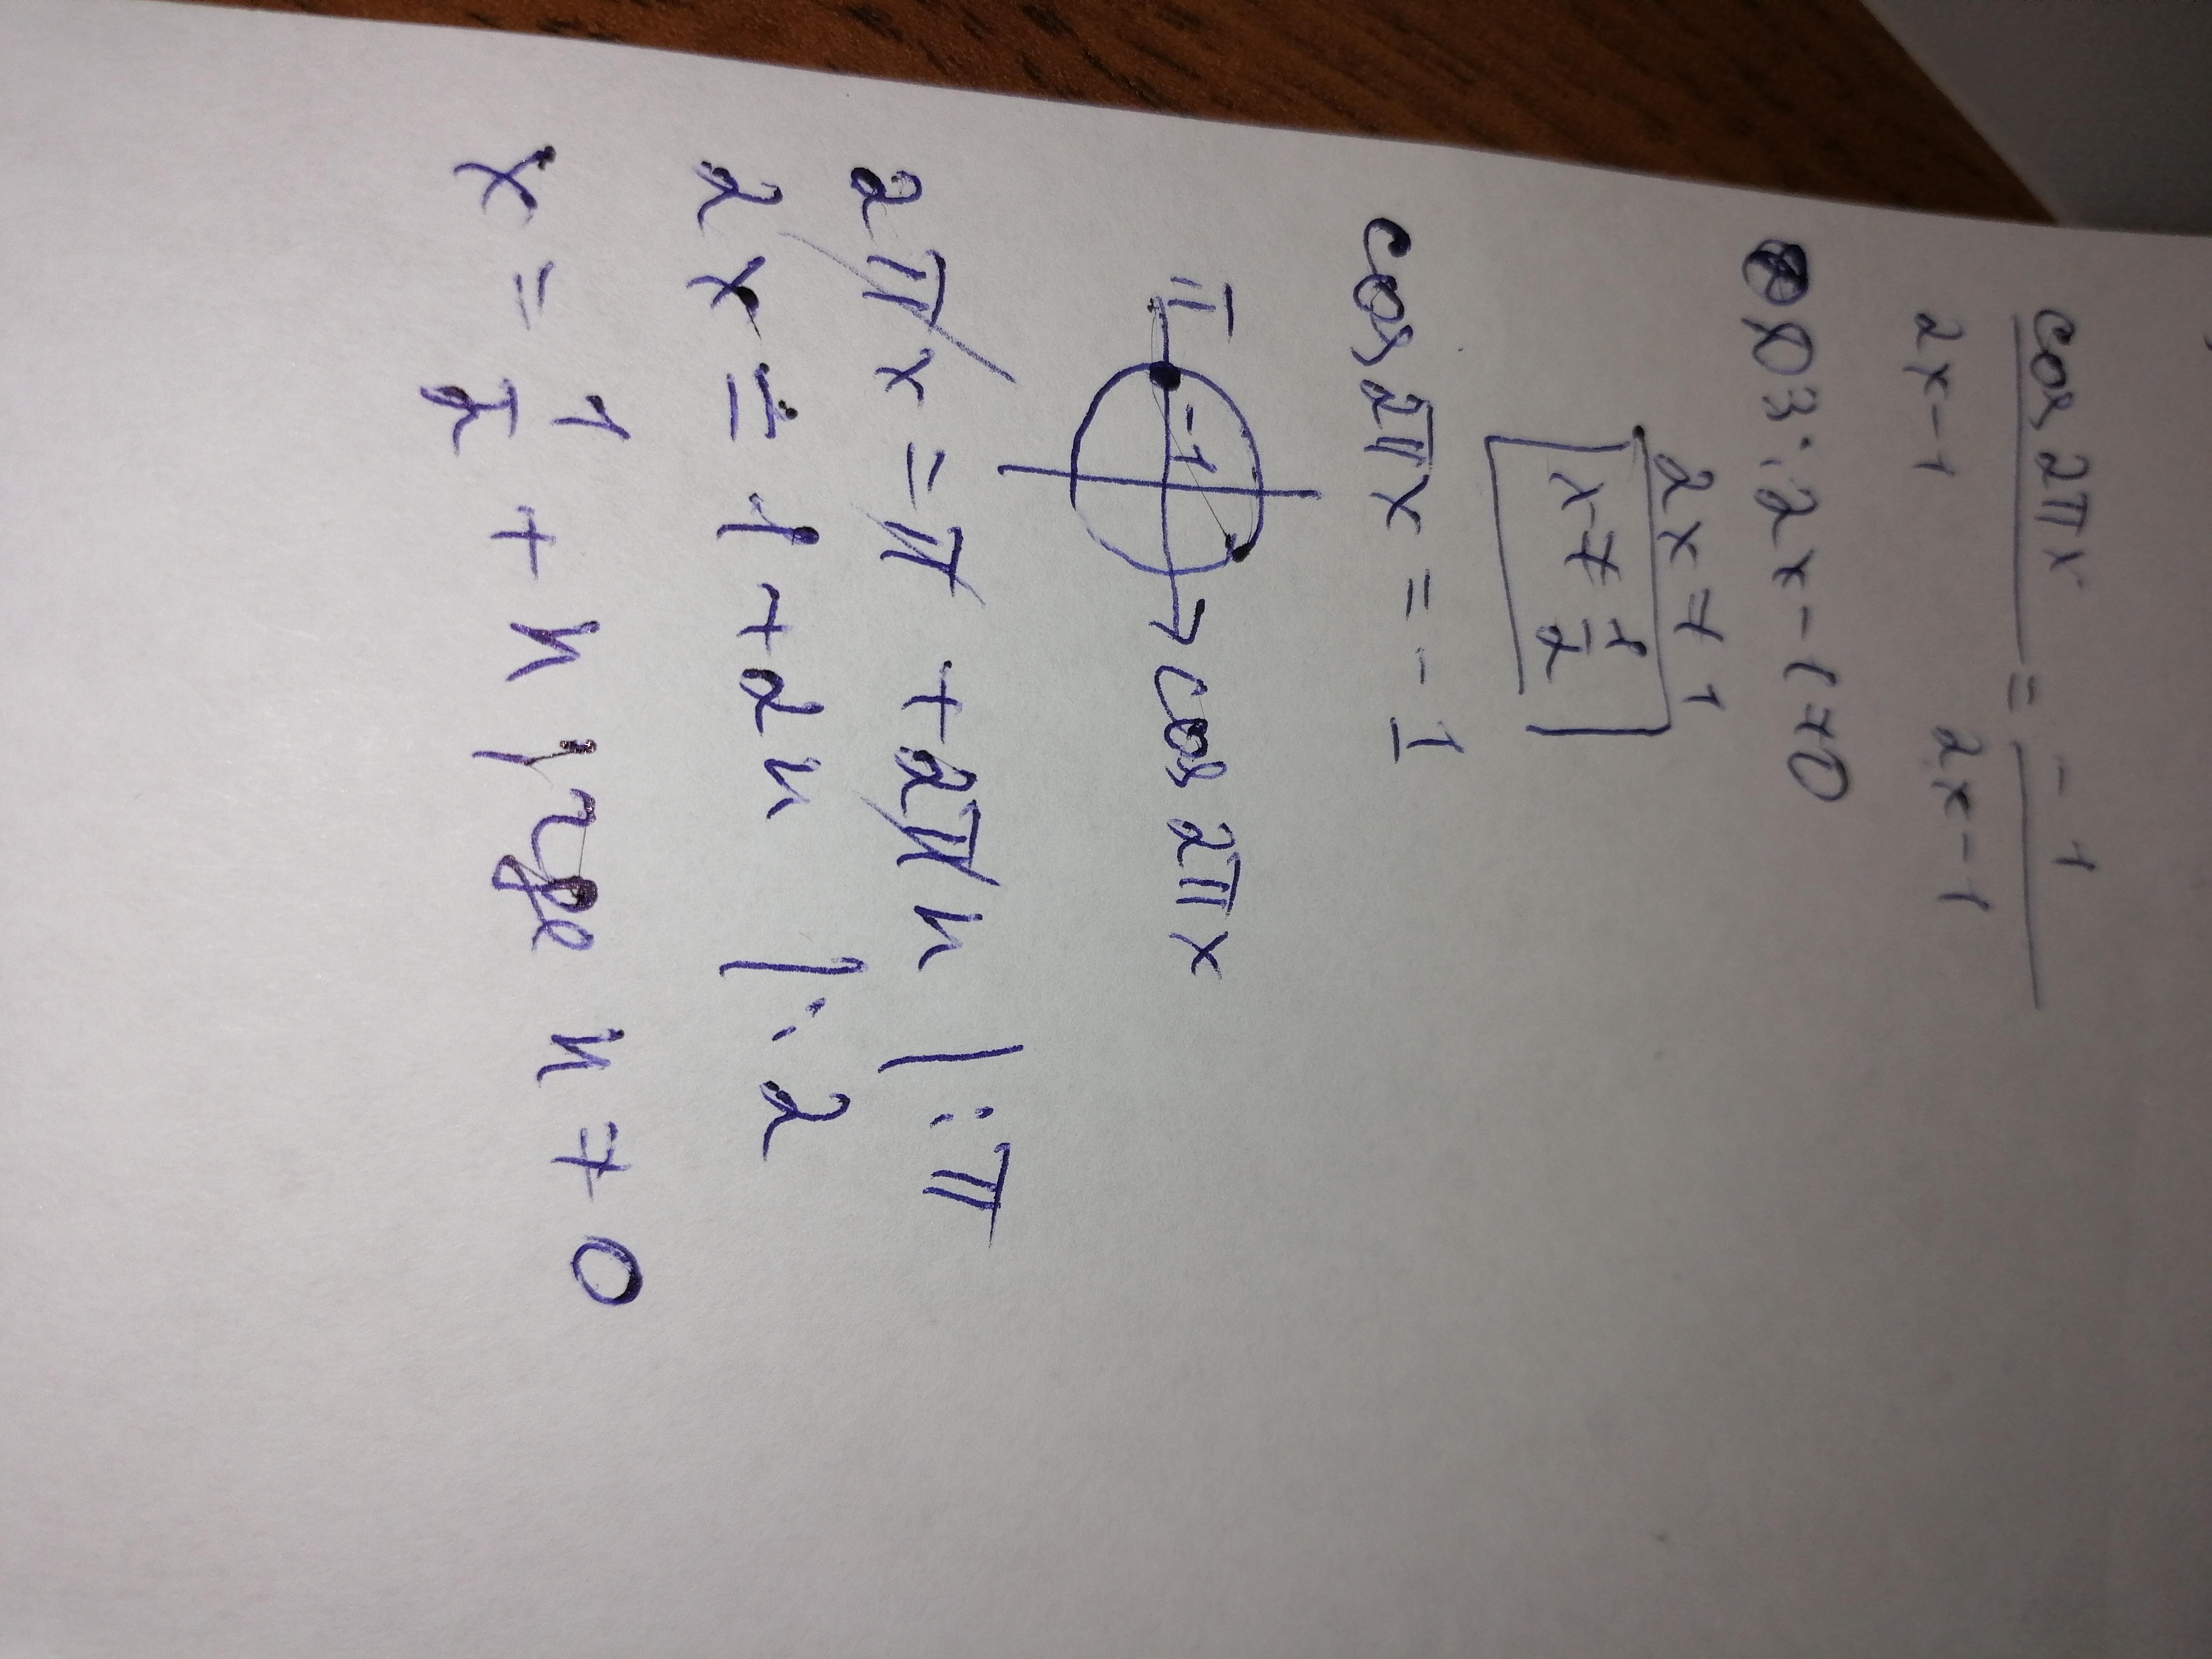 cos 2πx / 2x-1 = -1 / 2x-1
ОДЗ: 2x-1≠0
2x≠1
x≠1/2
cos2πx = -1
π -1 cos 2πx
2πx = π + 2πn |:π
2x = 1+2n |:2
x = 1/2 + n, где n ≠ 0